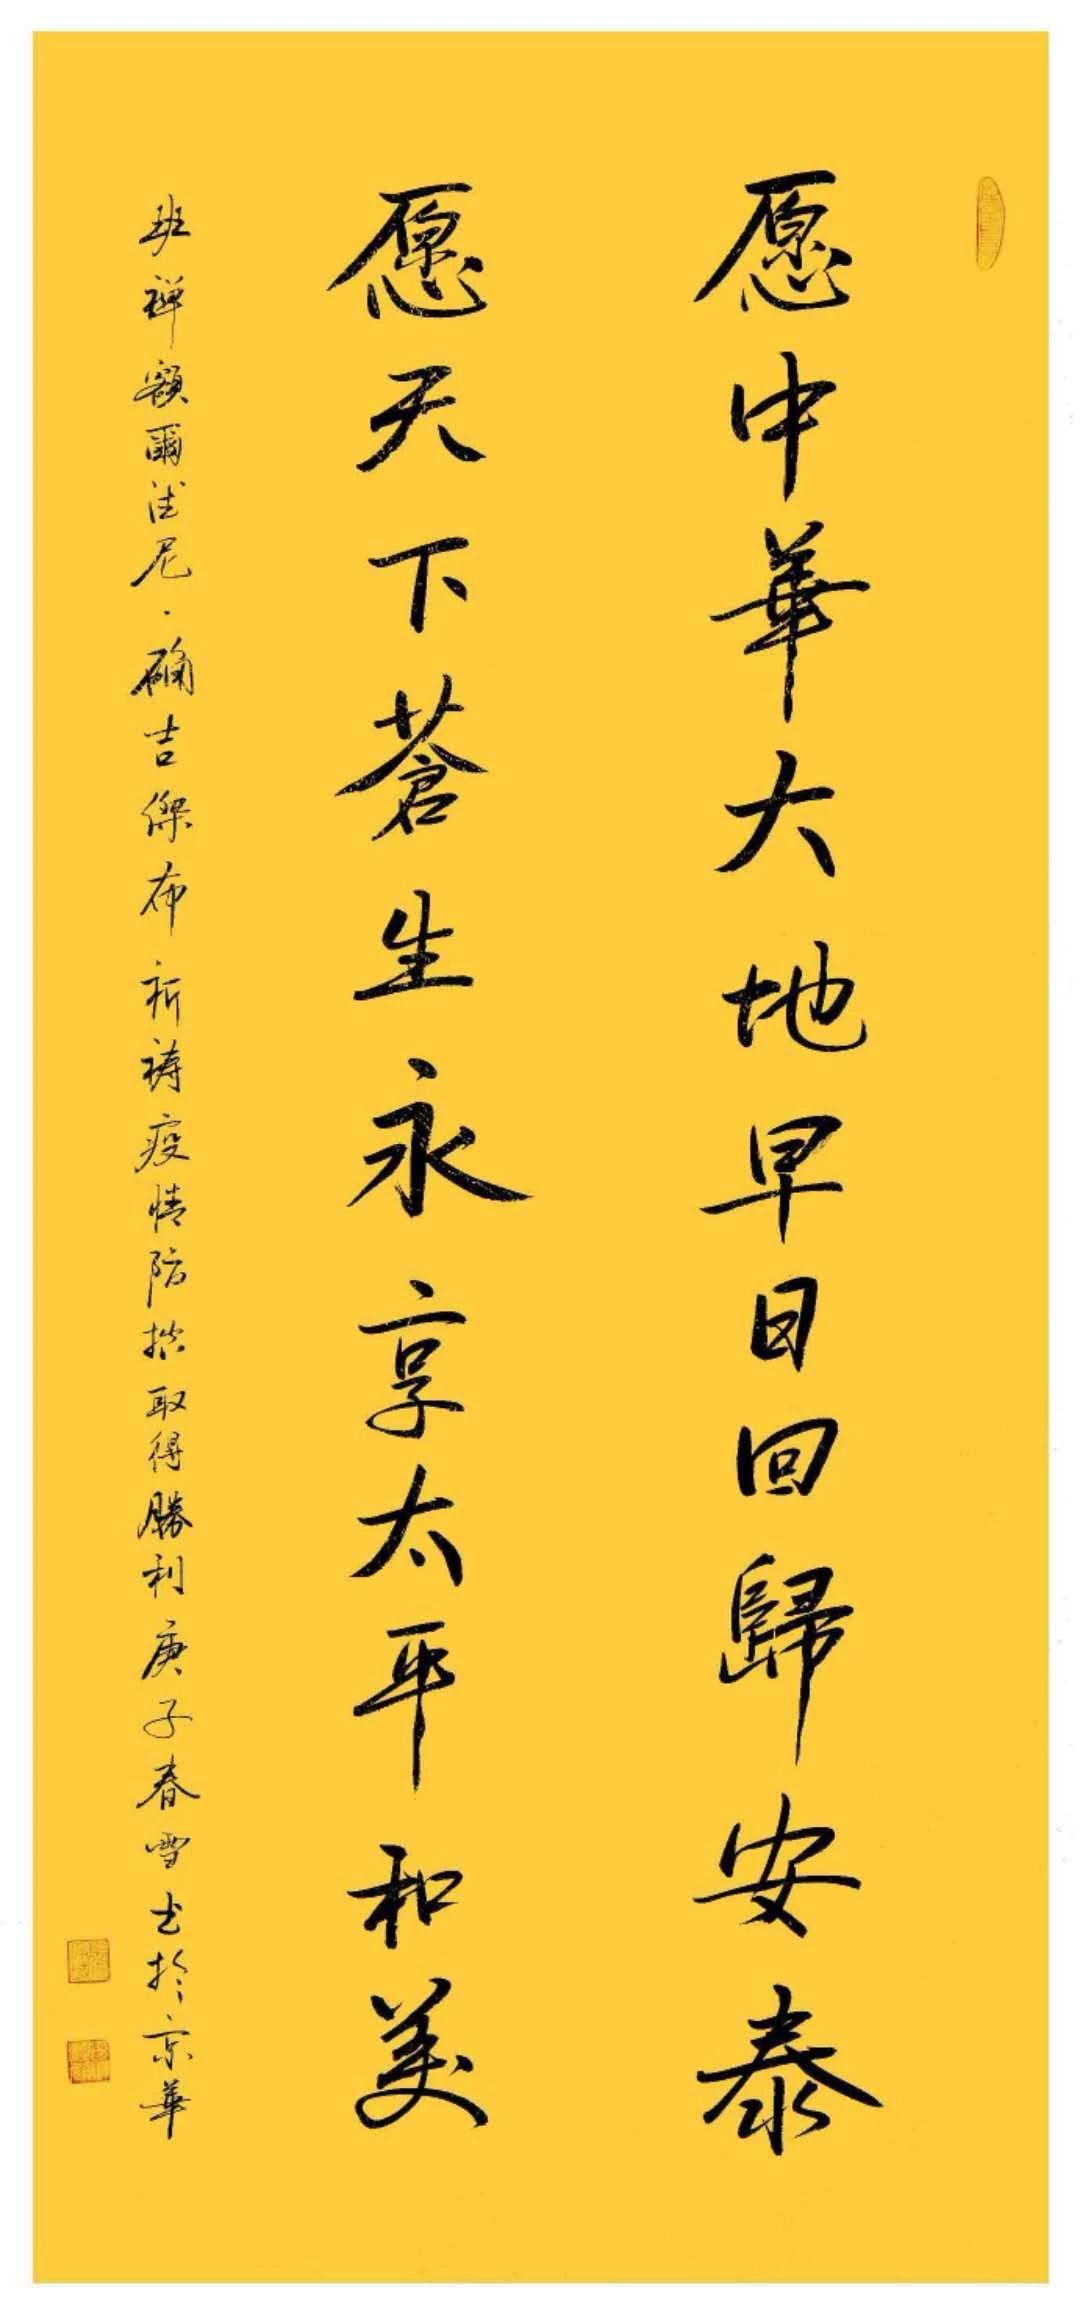 愿中華大地早日回歸安泰
愿天下蒼生永享太平和美
班禪額爾德尼·确吉傑布祈祷疫情防控取得勝利庚子春雪书於京華